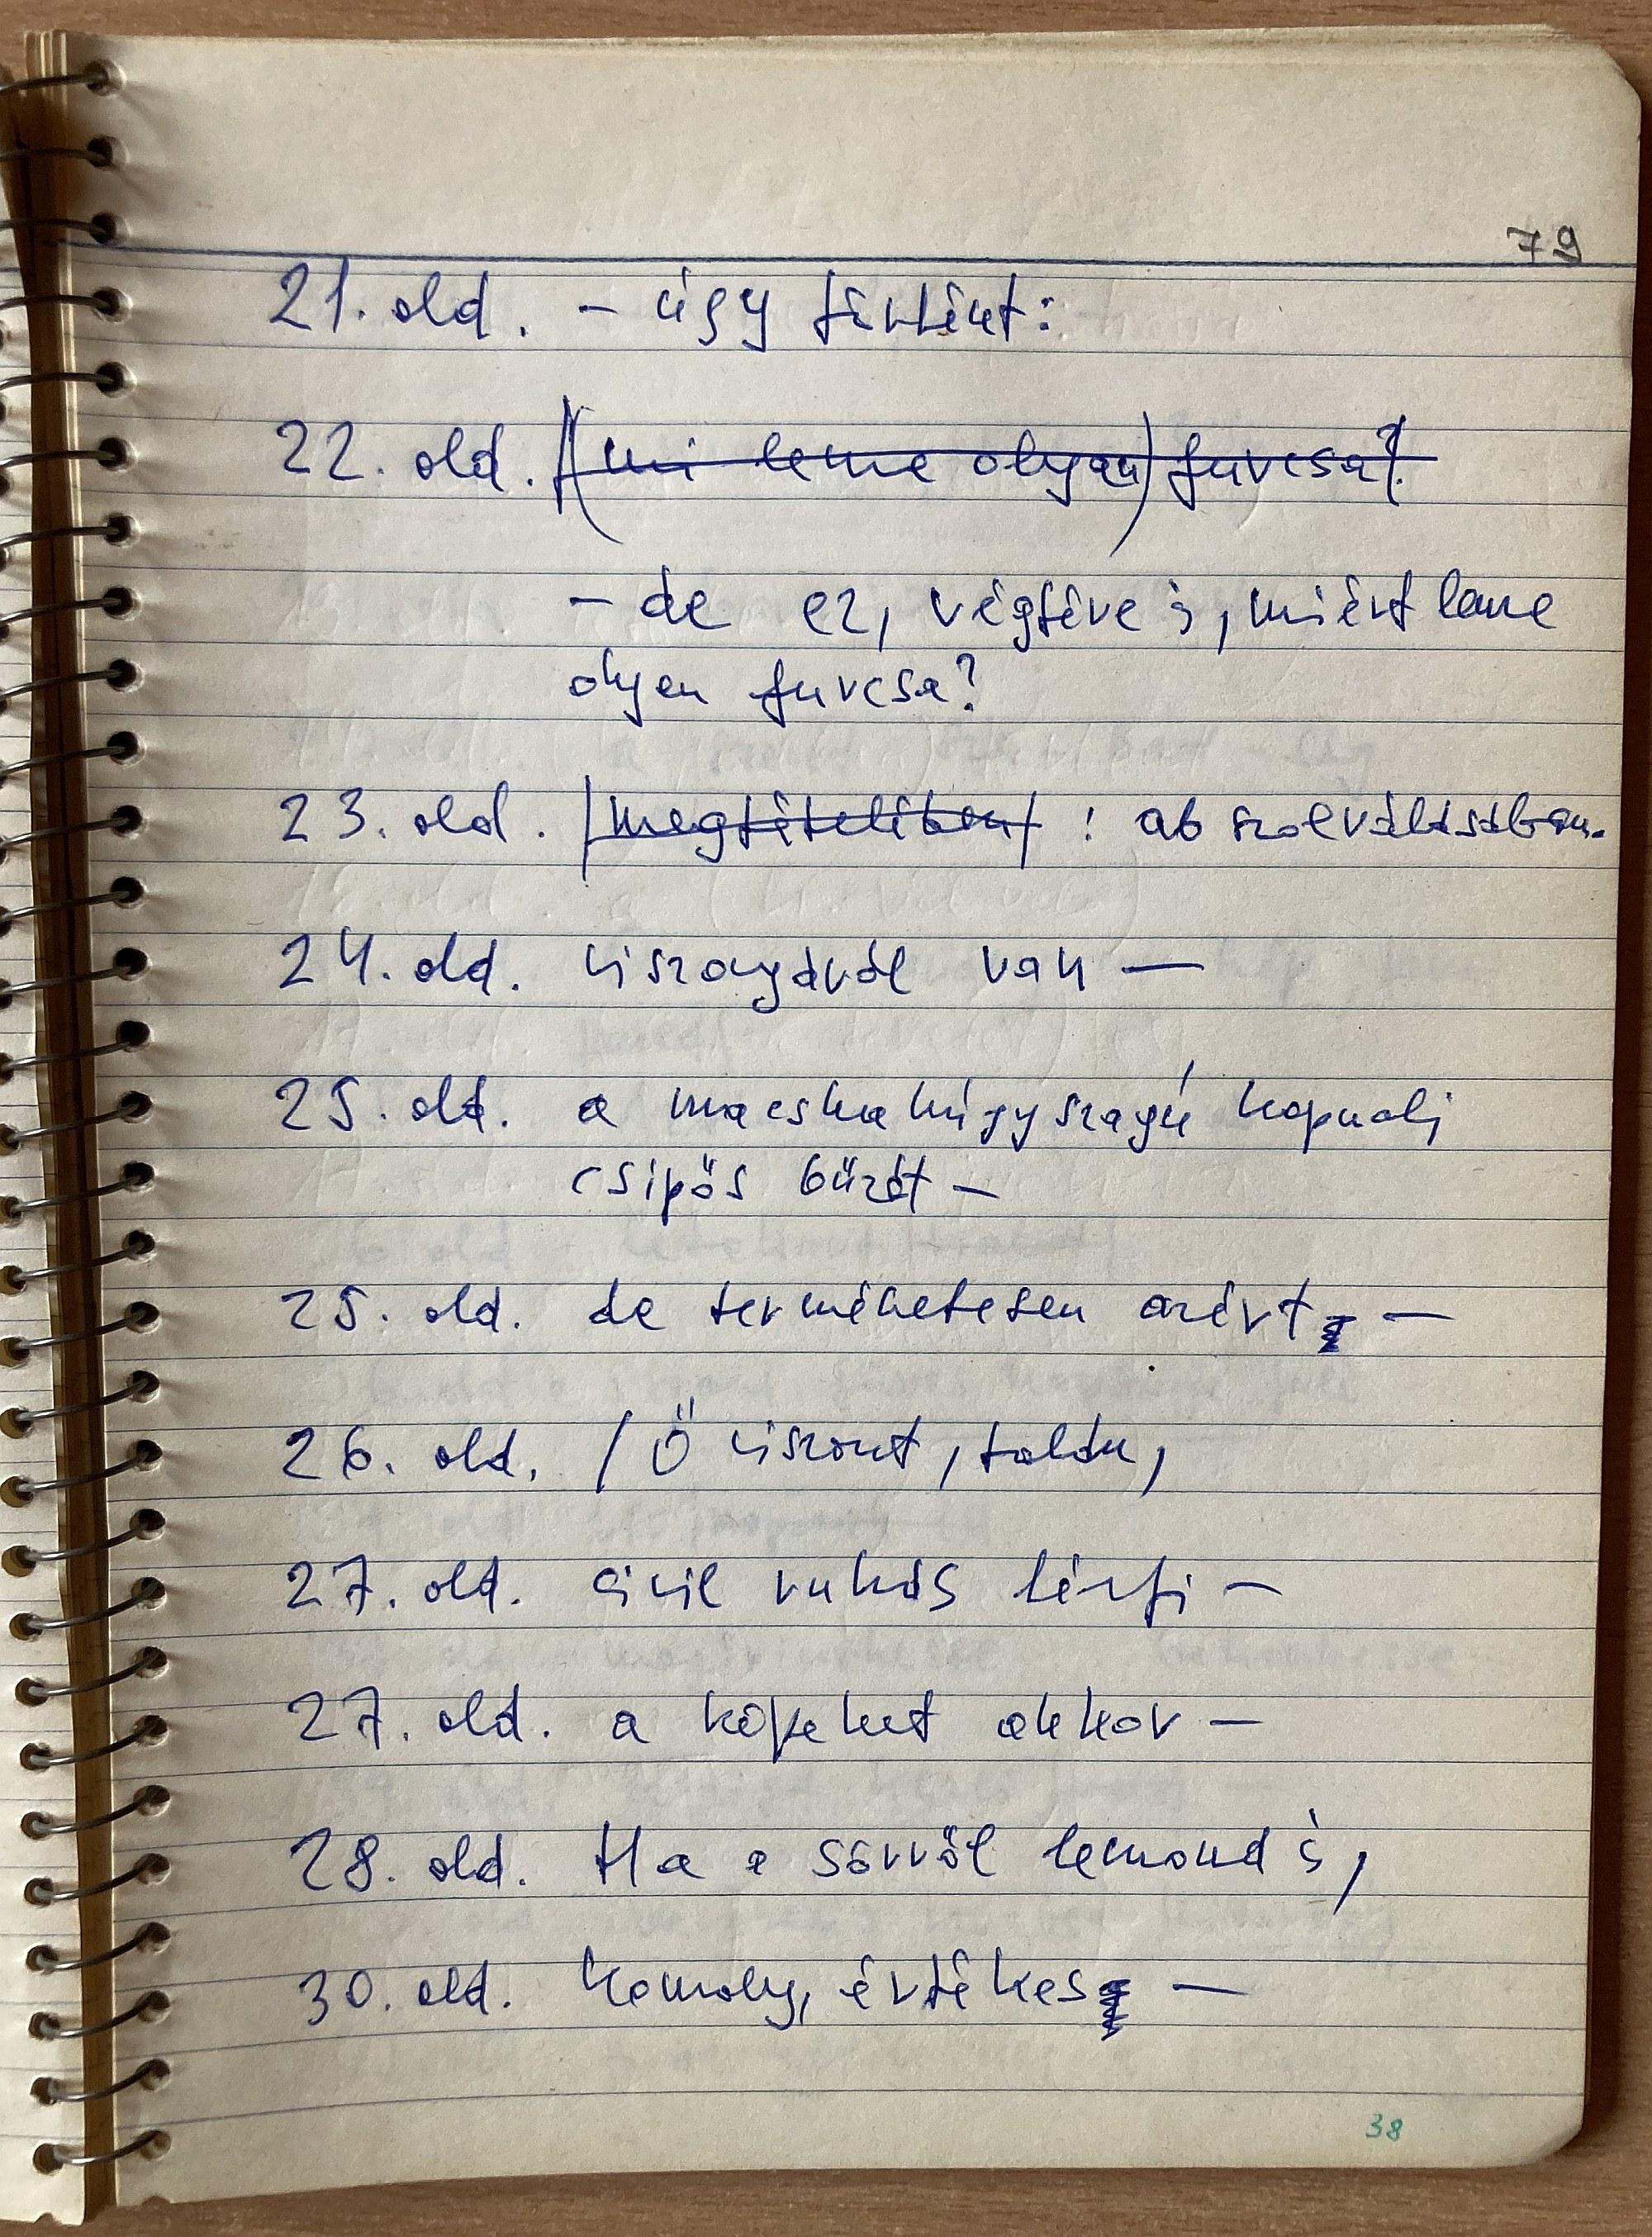 79
21. old. – úgy történt:
22. old. /(mi lenne olyan) furcsa?
– de ez, végtére is, miért lenne
olyan furcsa?
23. old. /megtételében/ : abszolválásában.
24. old. viszonyáról van —
25. old. a macskahúgyszagú kapualj
csípős bűzét —
25. old. de természetesen azért —
26. old. / Ő viszont, toldu,
27. old. civil ruhás férfi —
27. old. a képeket akkor —
28. old. Ha a sörről lemond is,
30. old. komoly, értékes —
38